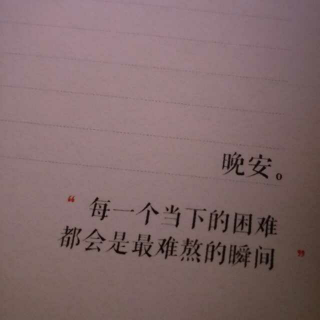 晚安。
“ 每一个当下的困难
都会是最难熬的瞬间 ”